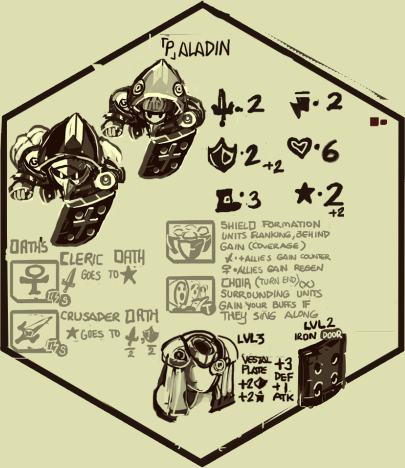 「P」ALADIN
2
2
2 +2
6
3
2
+2
OATHS
CLERIC OATH
GOES TO
CRUSADER OATH
GOES TO
2 2
SHIELD FORMATION
UNITS RANKING BEHIND
GAIN (COVERAGE)
+ALLIES GAIN COUNTER
ALLIES GAIN REGEN
CHOIR (TURN END)
SURROUNDING UNITS
GAIN YOUR BUFFS IF
THEY SING ALONG
LVL3
VESTAL
PLATE
+2
+2
LVL2
IRON DOOR
+3
DEF
+1
ATK